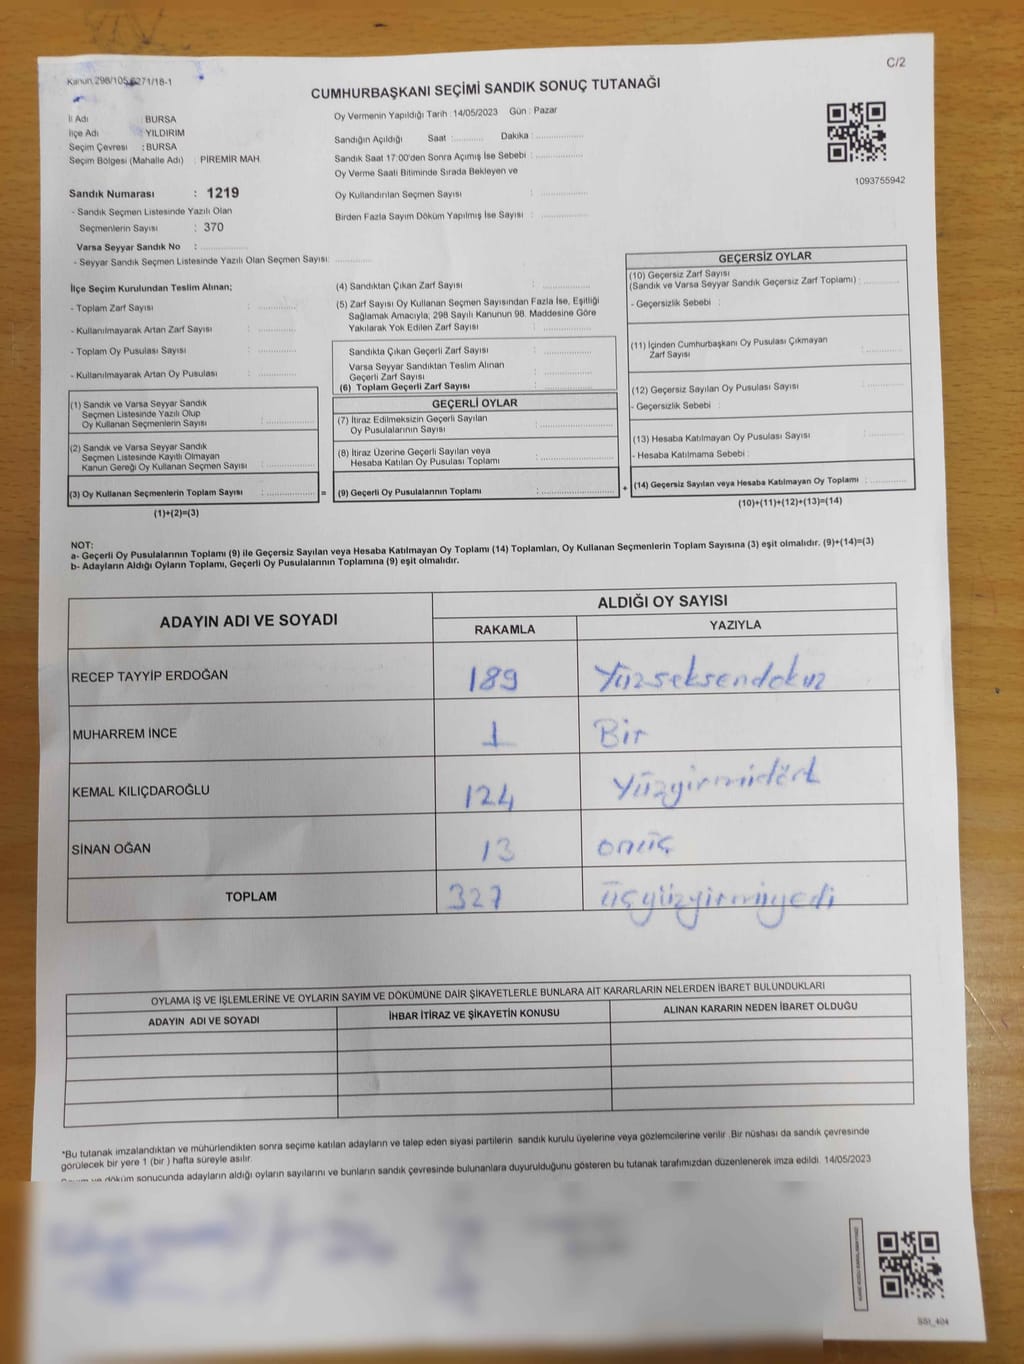 C/2
Kanun 298/105,6271/18-1
CUMHURBAŞKANI SEÇİMİ SANDIK SONUÇ TUTANAĞI
İl Adı : BURSA
İlçe Adı : YILDIRIM
Seçim Çevresi : BURSA
Seçim Bölgesi (Mahalle Adı) : PİREMİR MAH.
Sandık Numarası : 1219
- Sandık Seçmen Listesinde Yazılı Olan
Seçmenlerin Sayısı : 370
Varsa Seyyar Sandık No : ............
- Seyyar Sandık Seçmen Listesinde Yazılı Olan Seçmen Sayısı: ............
Oy Vermenin Yapıldığı Tarih : 14/05/2023 Gün : Pazar
Sandığın Açıldığı Saat : .......... Dakika : ...............
Sandık Saat 17:00'den Sonra Açımış İse Sebebi : ...............
Oy Verme Saati Bitiminde Sırada Bekleyen ve
Oy Kullandırılan Seçmen Sayısı : ...............
Birden Fazla Sayım Döküm Yapılmış İse Sayısı : ...............
1093755942
İlçe Seçim Kurulundan Teslim Alınan;
- Toplam Zarf Sayısı : ............
- Kullanılmayarak Artan Zarf Sayısı : ............
- Toplam Oy Pusulası Sayısı : ............
- Kullanılmayarak Artan Oy Pusulası : ............
(1) Sandık ve Varsa Seyyar Sandık
Seçmen Listesinde Yazılı Olup
Oy Kullanan Seçmenlerin Sayısı : ...............
(2) Sandık ve Varsa Seyyar Sandık
Seçmen Listesinde Kayıtlı Olmayan
Kanun Gereği Oy Kullanan Seçmen Sayısı : ...............
(3) Oy Kullanan Seçmenlerin Toplam Sayısı : ............... =
(1)+(2)=(3)
(4) Sandıktan Çıkan Zarf Sayısı : ...............
(5) Zarf Sayısı Oy Kullanan Seçmen Sayısından Fazla İse, Eşitliği
Sağlamak Amacıyla; 298 Sayılı Kanunun 98. Maddesine Göre
Yakılarak Yok Edilen Zarf Sayısı : ...............
Sandıkta Çıkan Geçerli Zarf Sayısı : ...............
Varsa Seyyar Sandıktan Teslim Alınan
Geçerli Zarf Sayısı : ...............
(6) Toplam Geçerli Zarf Sayısı : ...............
GEÇERLİ OYLAR
(7) İtiraz Edilmeksizin Geçerli Sayılan
Oy Pusulalarının Sayısı : ...............
(8) İtiraz Üzerine Geçerli Sayılan veya
Hesaba Katılan Oy Pusulası Toplamı : ...............
(9) Geçerli Oy Pusulalarının Toplamı : ............... +
GEÇERSİZ OYLAR
(10) Geçersiz Zarf Sayısı
(Sandık ve Varsa Seyyar Sandık Geçersiz Zarf Toplamı) : ............
- Geçersizlik Sebebi :
(11) İçinden Cumhurbaşkanı Oy Pusulası Çıkmayan
Zarf Sayısı : ............
(12) Geçersiz Sayılan Oy Pusulası Sayısı : ............
- Geçersizlik Sebebi :
(13) Hesaba Katılmayan Oy Pusulası Sayısı : ............
- Hesaba Katılmama Sebebi :
(14) Geçersiz Sayılan veya Hesaba Katılmayan Oy Toplamı : ............
(10)+(11)+(12)+(13)=(14)
NOT:
a- Geçerli Oy Pusulalarının Toplamı (9) ile Geçersiz Sayılan veya Hesaba Katılmayan Oy Toplamı (14) Toplamları, Oy Kullanan Seçmenlerin Toplam Sayısına (3) eşit olmalıdır. (9)+(14)=(3)
b- Adayların Aldığı Oyların Toplamı, Geçerli Oy Pusulalarının Toplamına (9) eşit olmalıdır.
ADAYIN ADI VE SOYADI ALDIĞI OY SAYISI
RAKAMLA YAZIYLA
RECEP TAYYİP ERDOĞAN 189 Yüzseksendokuz
MUHARREM İNCE 1 Bir
KEMAL KILIÇDAROĞLU 124 Yüzyirmidört
SİNAN OĞAN 13 onüç
TOPLAM 327 üçyüzyirmiyedi
OYLAMA İŞ VE İŞLEMLERİNE VE OYLARIN SAYIM VE DÖKÜMÜNE DAİR ŞİKAYETLERLE BUNLARA AİT KARARLARIN NELERDEN İBARET BULUNDUKLARI
ADAYIN ADI VE SOYADI İHBAR İTİRAZ VE ŞİKAYETİN KONUSU ALINAN KARARIN NEDEN İBARET OLDUĞU
*Bu tutanak imzalandıktan ve mühürlendikten sonra seçime katılan adayların ve talep eden siyasi partilerin sandık kurulu üyelerine veya gözlemcilerine verilir .Bir nüshası da sandık çevresinde
görülecek bir yere 1 (bir ) hafta süreyle asılır.
döküm sonucunda adayların aldığı oyların sayılarını ve bunların sandık çevresinde bulunanlara duyurulduğunu gösteren bu tutanak tarafımızdan düzenlenerek imza edildi. 14/05/2023